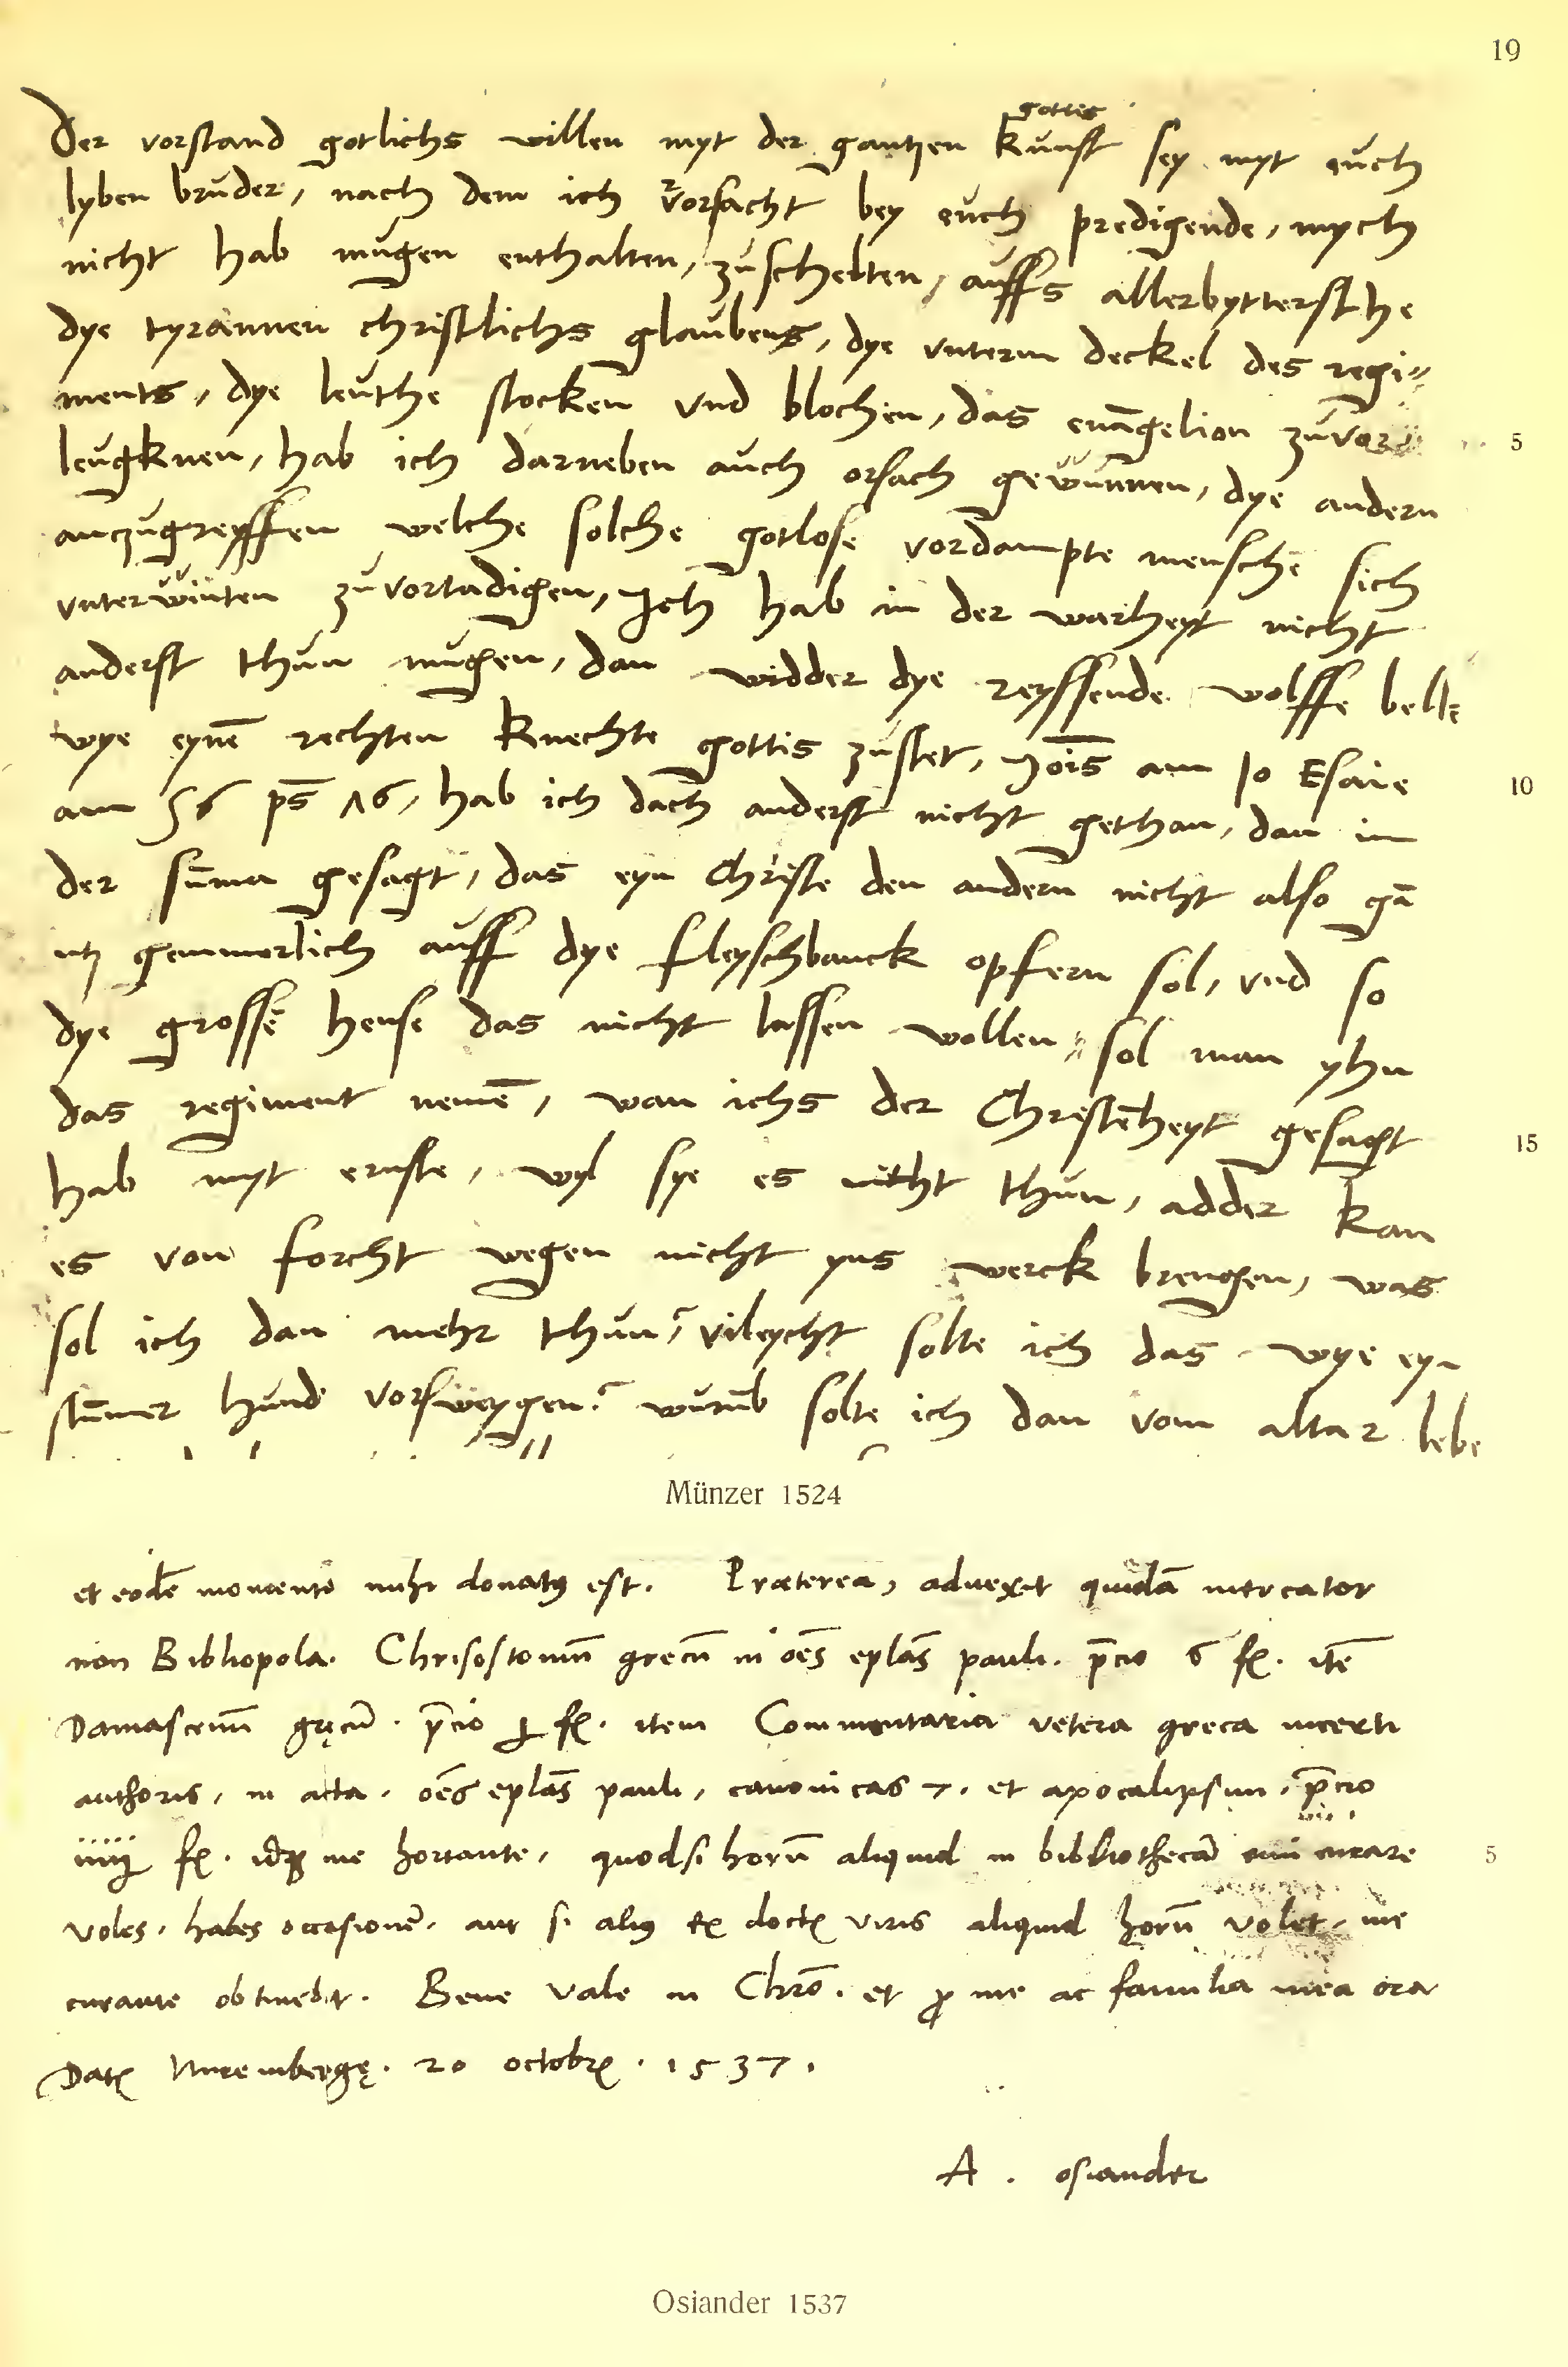 19
gottis
Der vorstand gotlichs willen myt der gantzen kunst sey myt euch
lyben bruder, nach dem ich vorsacht bey euch predigende, mych
nicht hab mugen enthalten, zuschelten, auffs allerbyttersthe
dye tyrannen christlichs glaubens, dye vnterm deckel des regi//
ments, dye leuthe stocken vnd blochen, das euāgelion zuvor
5
leugknen, hab ich darneben auch orsach gewunnen, dye andern
anczugreyffen welche solche gotlose vordampte menschē sich
vnterwinten zuvortadigen, Ich hab in der warheyt nicht
anderst thun mugen, dan widder dye reyssende wolffe belle
wye eynē rechten knechte gottis zustet, Jois am 10 Esaie
10
am 56 ps 76, hab ich dach anderst nicht gethan, dan im
der sūma gesagt, das eyn Christe den andern nicht also gā
ntz gemmerlich auff dye fleyschbanck opfern sol, vnd so
dye grossē hense das nicht lassen wollen, sol man yhn
das regiment nemē, wan ichs der Christēheyt gesagt
15
hab myt ernste, wyl sye es nicht thun, adder kan
es von forcht wegen nicht yns werck brengen, was
sol ich dan mehr thun? vileycht solte ich das wye eyn
stūmer hund vorsweygen? wurūb solte ich dan vom altar lebe
Münzer 1524
et eodē momento mihi donatꝰ est. Præterea, aduexit quidā mercator
non Bibliopola. Chrisostomū grecū in oēs eplās pauli. p̄cio 6 fl. itē
Damascenū gręcū. p̄cio fl. item Commentaria vetera greca incerti
authoris, in acta. oēs eplās pauli, canonicas 7. et apocalipsim. p̄cio
fl. idqꝫ me hortante, quodsi horū aliquid in bibliothecā curare
5
voles. habes occasionē. aut si aliꝰ ex doctis viris aliquid horū volet. me
curante obtinebit. Bene vale in Chro. et ꝓ me ac familia mea ora
Datꝭ Nurembergę. 20 octobrꝭ. 1537.
A. osiander
Osiander 1537